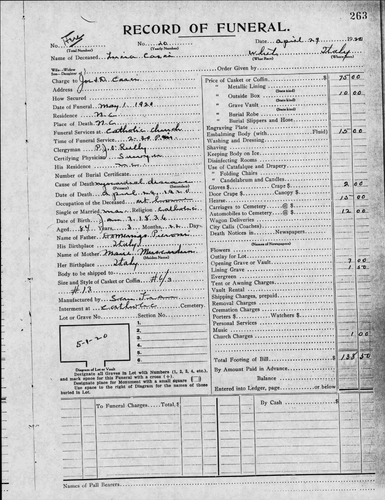 263
RECORD OF FUNERAL.
No. Free No. 20 Date, April 29 1920
(Total Number) (Yearly Number)
Name of Deceased, White Italy
(What Race) (Where Born)
Wife—Widow
Son—Daughter } of
Charge to
Order Given by
Address
How Secured
Date of Funeral, May 1. 1920
Residence, N.C.
Place of Death, N.C.
Funeral Services at Catholic Church
Time of Funeral Service,
Clergyman P.J.S. Reilly
Certifying Physician,
His Residence,
Number of Burial Certificate,
Cause of Death, disease
Date of Death, April 29, 1920
Occupation of the Deceased, at home
Single or Married, Religion, Catholic
Date of Birth, Jan. 1836
Aged 84 Years 3 Months, Days
Name of Father, Domingo
His Birthplace, Italy
Name of Mother, Marie
(Maiden Name)
Her Birthplace, Italy
Body to be shipped to
Size and Style of Casket or Coffin, 6/3
#13
Manufactured by
Interment at Catholic Cemetery.
Lot or Grave No. Section No.
1
2
3
4
5
5-1-20
Diagram of Lot or Vault
Designate all Graves in Lot with Numbers (1, 2, 3, 4, etc.), and mark space for this Funeral with a cross (+).
Designate place for Monument with a small square
Use space to the right of Diagram for the names of those buried in Lot.
Price of Casket or Coffin 75 00
" Metallic Lining
(State kind)
" Outside Box 10 00
(State kind)
" Grave Vault
(State kind)
" Burial Robe
(State kind)
" Burial Slippers and Hose
Engraving Plate
Embalming Body (with Fluid) 15 00
Washing and Dressing
Shaving
Keeping Body on Ice
Disinfecting Rooms
Use of Catafalque and Drapery
" Folding Chairs
" Candelabrum and Candles
Gloves $ Crape $ 2 00
Door Crape
Hearse 15 00
Carriages to Cemetery @ $
Automobiles to Cemetery @ $ 12 00
Wagon Deliveries
City Calls (Coaches)
Death Notices in Newspapers
(Names of Newspapers)
Flowers
Outlay for Lot
Opening Grave or Vault 7 00
Lining Grave 1 50
Evergreen
Tent or Awning Charges
Vault Rental
Shipping Charges, prepaid
Removal Charges
Cremation Charges
Porters $ Watchers $
Personal Services
Music
Church Charges 1 00
Total Footing of Bill 138 50
By Amount Paid in Advance
Balance
Entered into Ledger, page or below.
To Funeral Charges Total, $
By Cash $
Names of Pall Bearers.